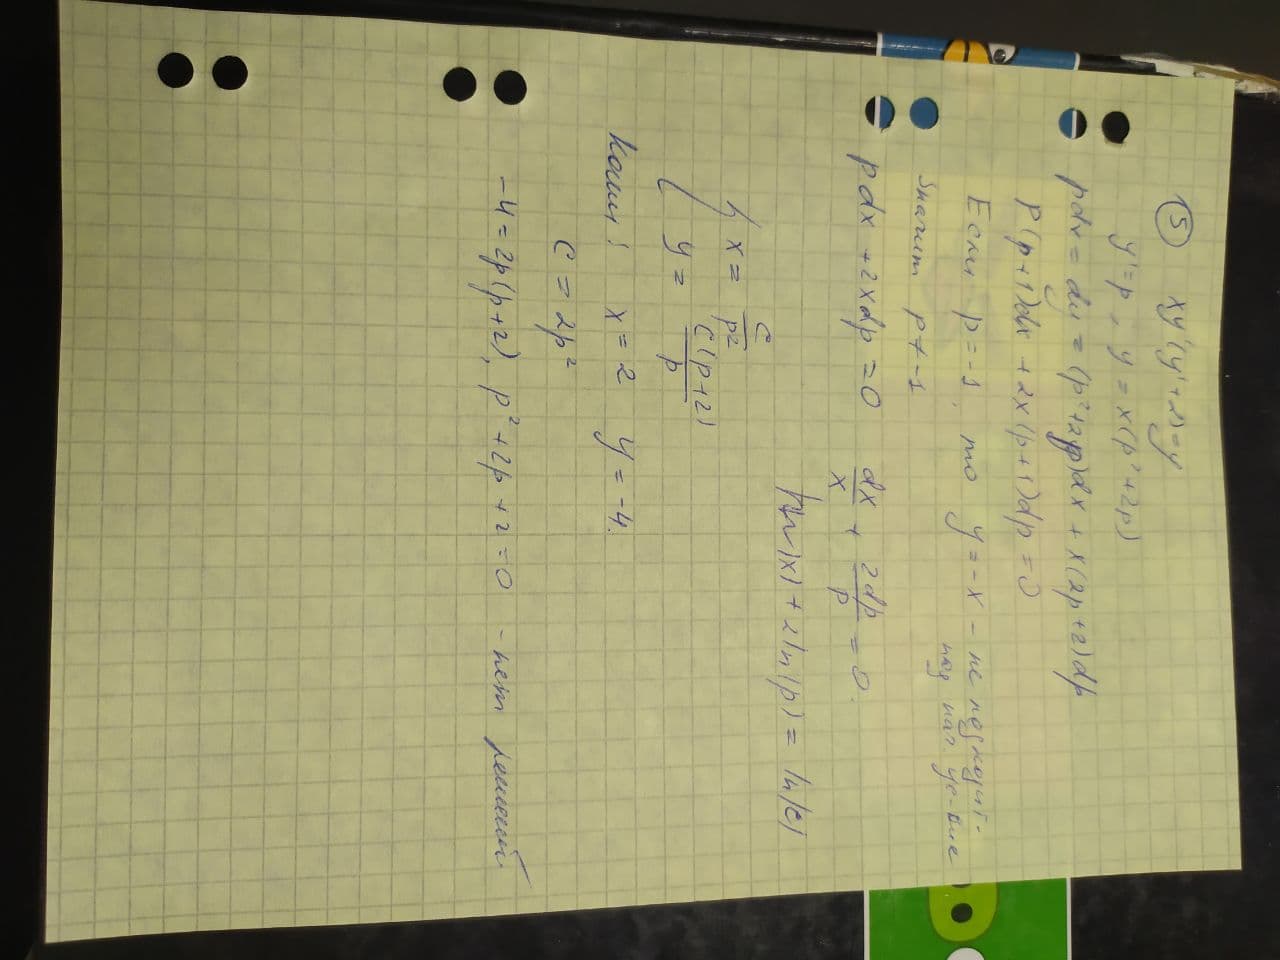 ⑤ xy'(y'+2)=y
y'=p, y = x(p²+2p)
pdx = dy = (p²+2p)dx + x(2p+2)dp
P(p+1)dx + 2x(p+1)dp = 0
Если p=-1, то y=-x - не подходит
под нач. ус-вие
Значит p≠-1
pdx + 2xdp = 0 dx/x + 2dp/p = 0.
ln|x| + 2ln(p) = ln|c|
{ x = c/p²
y = c(p+2)/p
Коши: x = 2 y = -4.
c = 2p²
-4 = 2p(p+2), p²+2p+2=0 - нет решений